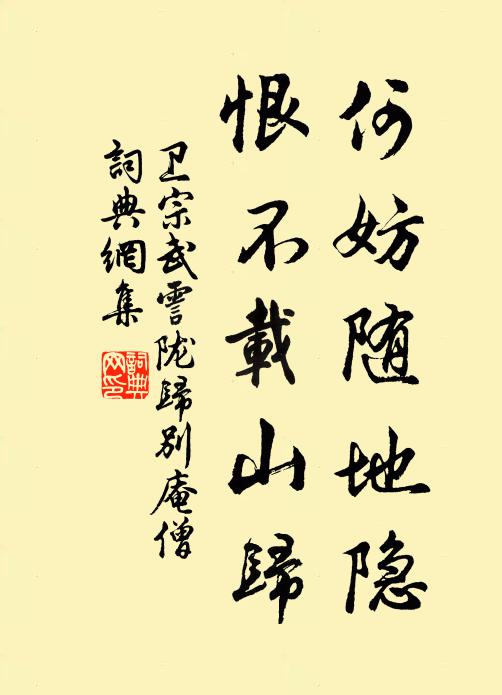 何妨随地隐
恨不載山歸
卫宗武雲陇歸別庵僧
詞典網集
詞典网印